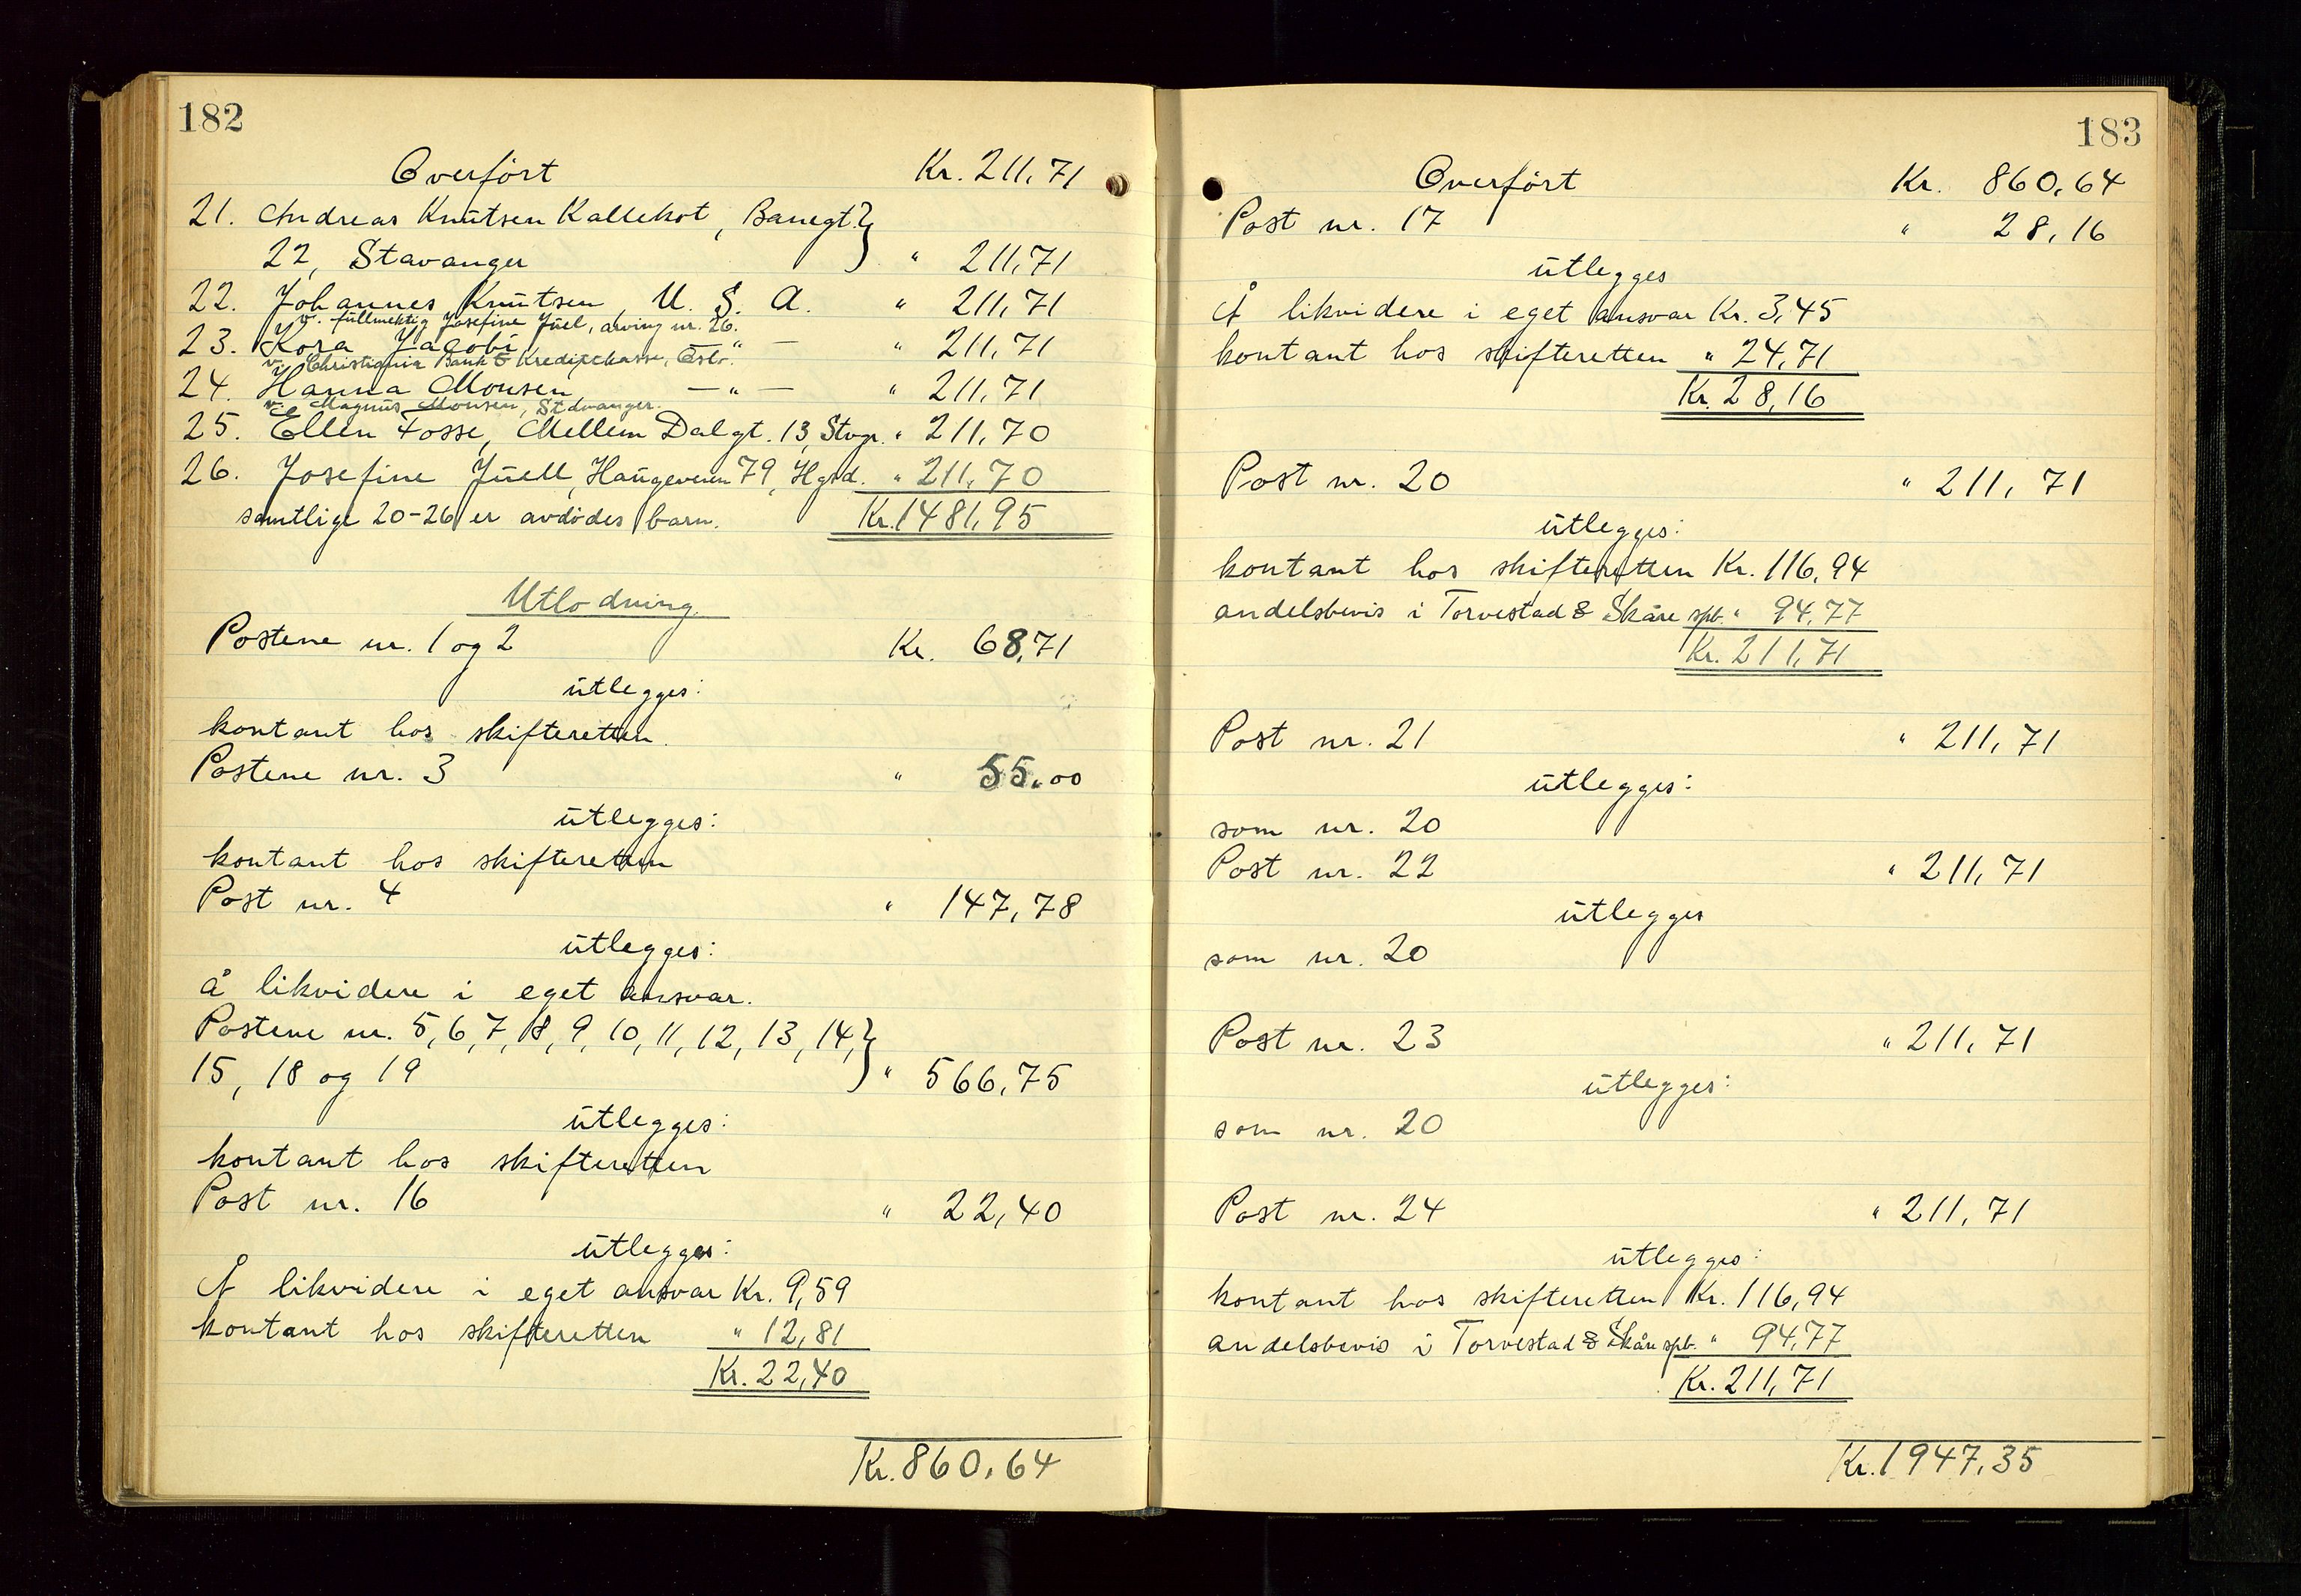 182
Overført Kr. 211,71
21. Andreas Knutsen Kallekot, Banegt.
22, Stavanger " 211,71
22. Johannes Knutsen, U. S. A. " 211,71
v. fullmektig Josefine Juel, arving nr. 26.
23. Kora Jacobi, —"— " 211,71
v. Christiania Bank & Kreditkasse, Oslo.
24. Hanna Monsen —"— " 211,71
v. Magnus Monsen, Stavanger.
25. Ellen Fosse, Mellem Dalgt. 13, Stvgr. " 211,70
26. Josefine Juell, Haugeveien 79, Hgsd. " 211,70
samtlige 20-26 er avdødes barn. Kr. 1481,95
Utlodning.
Postene nr. 1 og 2 Kr. 68,71
utlegges:
kontant hos skifteretten.
Postene nr. 3 " 55,00
utlegges:
kontant hos skifteretten
Post nr. 4 " 147,78
utlegges:
å likvidere i eget ansvar.
Postene nr. 5, 6, 7, 8, 9, 10, 11, 12, 13, 14,
15, 18 og 19 " 566,75
utlegges:
kontant hos skifteretten
Post nr. 16 " 22,40
utlegges:
Å likvidere i eget ansvar Kr. 9,59
kontant hos skifteretten " 12,81
Kr. 22,40
Kr. 860,64
183
Overført Kr. 860,64
Post nr. 17 " 28,16
utlegges
Å likvidere i eget ansvar Kr. 3,45
kontant hos skifteretten " 24,71
Kr. 28,16
Post nr. 20 " 211,71
utlegges:
kontant hos skifteretten Kr. 116,94
andelsbevis i Torvestad & Skåre spb. " 94,77
Kr. 211,71
Post nr. 21 " 211,71
utlegges:
som nr. 20
Post nr. 22 " 211,71
utlegges
som nr. 20
Post nr. 23 " 211,71
utlegges:
som nr. 20
Post nr. 24 " 211,71
utlegges:
kontant hos skifteretten Kr. 116,94
andelsbevis i Torvestad & Skåre spb. " 94,77
Kr. 211,71
Kr. 1947,35